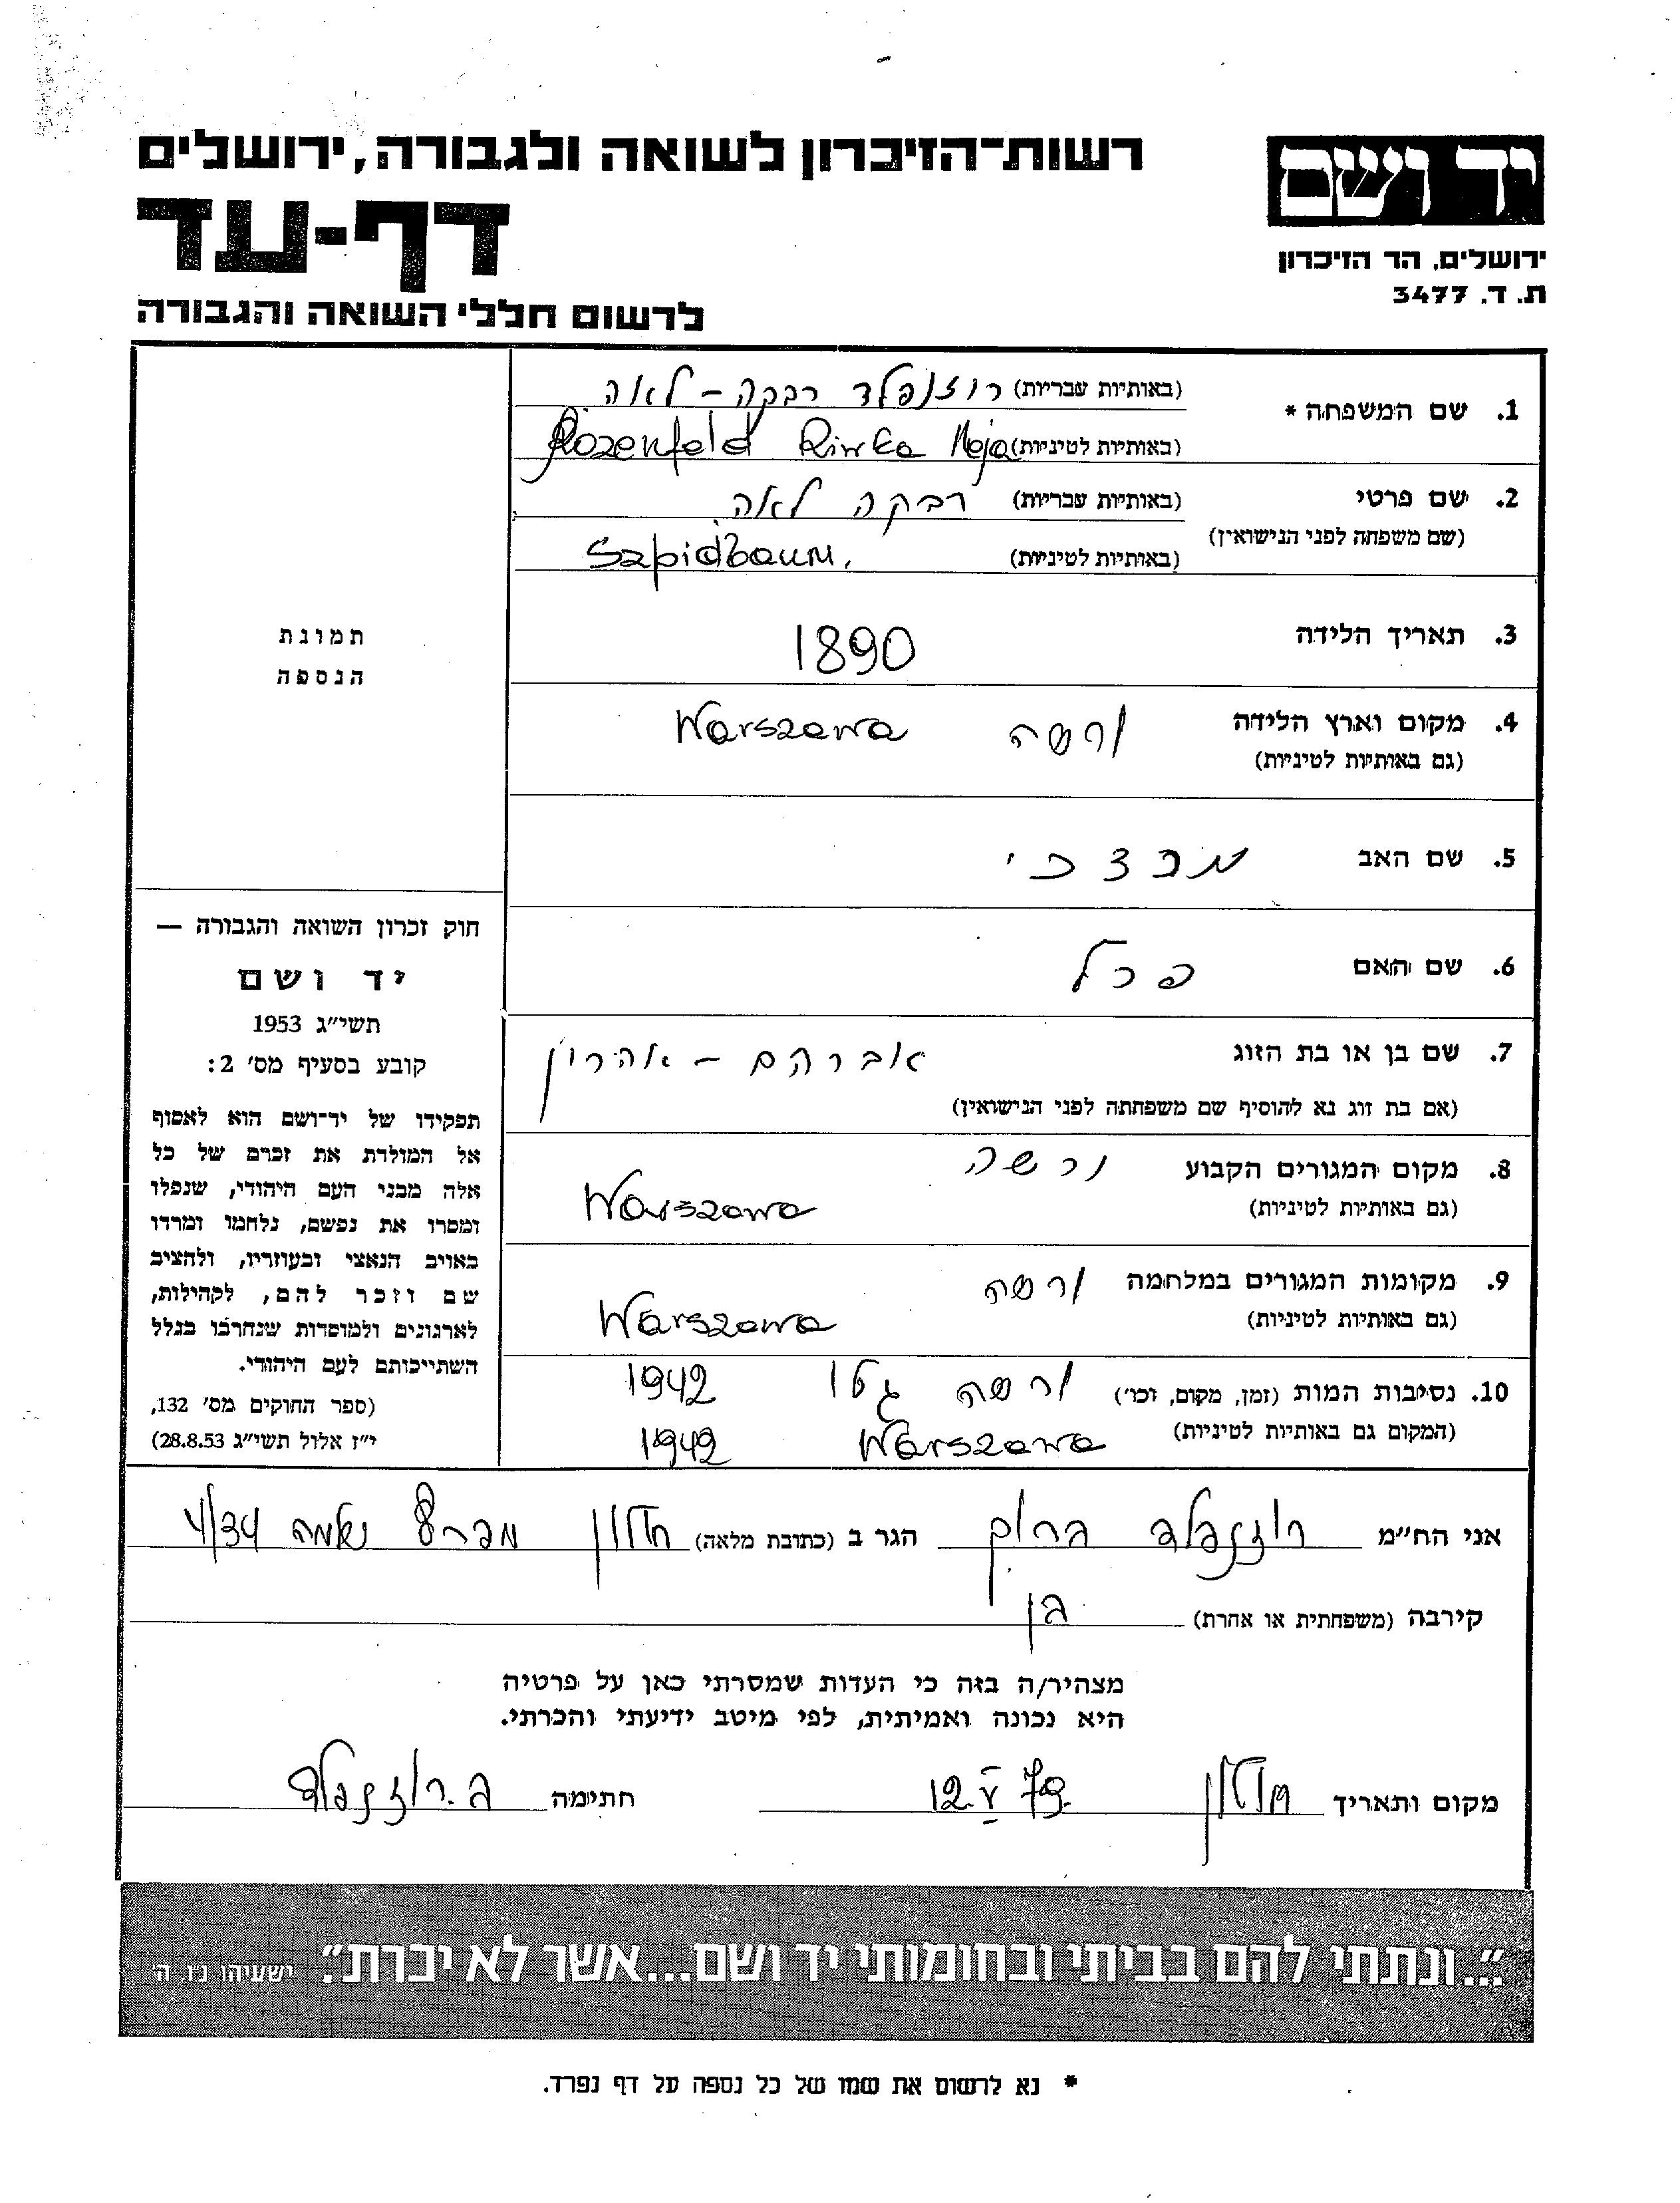 יד ושם
ירושלים, הר הזיכרון
ת. ד. 3477
רשות־הזיכרון לשואה ולגבורה, ירושלים
דף-עד
לרשום חללי השואה והגבורה
1. שם המשפחה * (באותיות עבריות) רוזנפלד רבקה – לאה
(באותיות לטיניות) Rozenfeld Riwka Leja
2. שם פרטי (באותיות עבריות) רבקה לאה
(שם משפחה לפני הנישואין) (באותיות לטיניות) Szpidbaum,
3. תאריך הלידה 1890
4. מקום וארץ הלידה ורשה Warszawa
(גם באותיות לטיניות)
5. שם האב מרדכי
6. שם האם פרל
7. שם בן או בת הזוג אברהם – אהרון
(אם בת זוג נא להוסיף שם משפחתה לפני הנישואין)
8. מקום המגורים הקבוע ורשה
(גם באותיות לטיניות) Warszawa
9. מקומות המגורים במלחמה ורשה
(גם באותיות לטיניות) Warszawa
10. נסיבות המות (זמן, מקום, וכו') ורשה גטו 1942
(המקום גם באותיות לטיניות) Warszawa 1942
תמונת
הנספה
חוק זכרון השואה והגבורה —
יד ושם
תשי״ג 1953
קובע בסעיף מס' 2:
תפקידו של יד־ושם הוא לאסוף
אל המולדת את זכרם של כל
אלה מבני העם היהודי, שנפלו
ומסרו את נפשם, נלחמו ומרדו
באויב הנאצי ובעוזריו, ולהציב
שם וזכר להם, לקהילות,
לארגונים ולמוסדות שנחרבו בגלל
השתייכותם לעם היהודי.
(ספר החוקים מס' 132,
י״ז אלול תשי״ג 28.8.53)
אני הח״מ רוזנפלד ברוך הגר ב (כתובת מלאה) חולון מבצע 4/34
קירבה (משפחתית או אחרת) בן
מצהיר/ה בזה כי העדות שמסרתי כאן על פרטיה
היא נכונה ואמיתית, לפי מיטב ידיעתי והכרתי.
מקום ותאריך חולון 12 V 79. חתימה ב. רוזנפלד
"...ונתתי להם בביתי ובחומותי יד ושם...אשר לא יכרת". ישעיהו נ״ו ה'
* נא לרשום את שמו של כל נספה על דף נפרד.